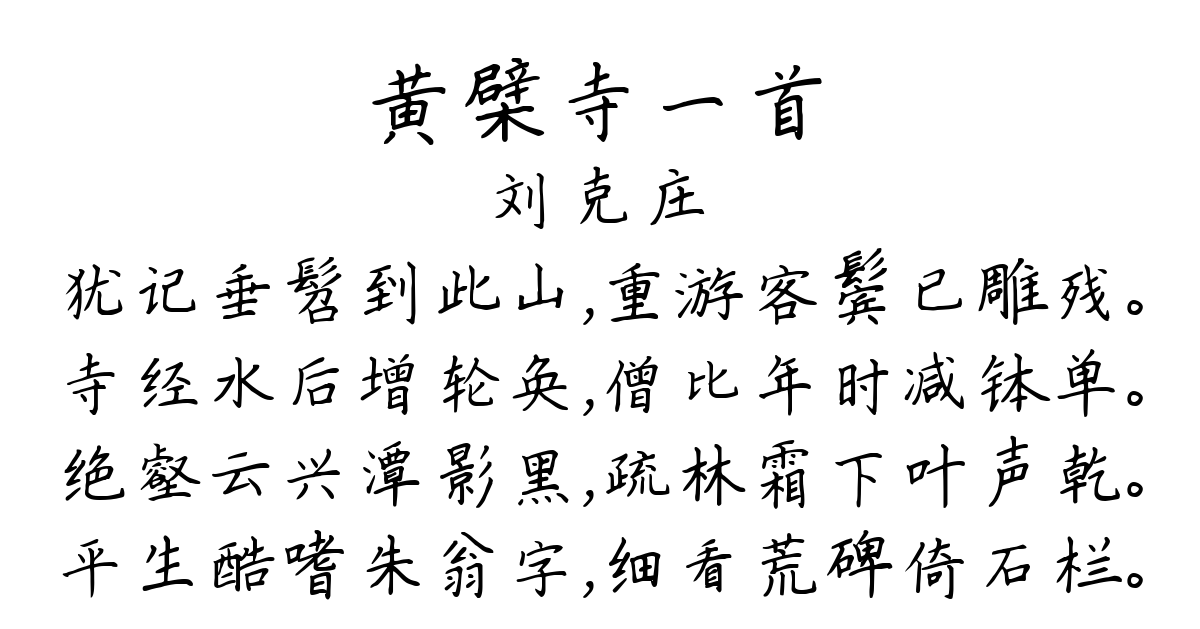 黄檗寺一首
刘克庄
犹记垂髫到此山,重游客鬓已雕残。
寺经水后增轮奂,僧比年时减钵单。
绝壑云兴潭影黑,疏林霜下叶声乾。
平生酷嗜朱翁字,细看荒碑倚石栏。